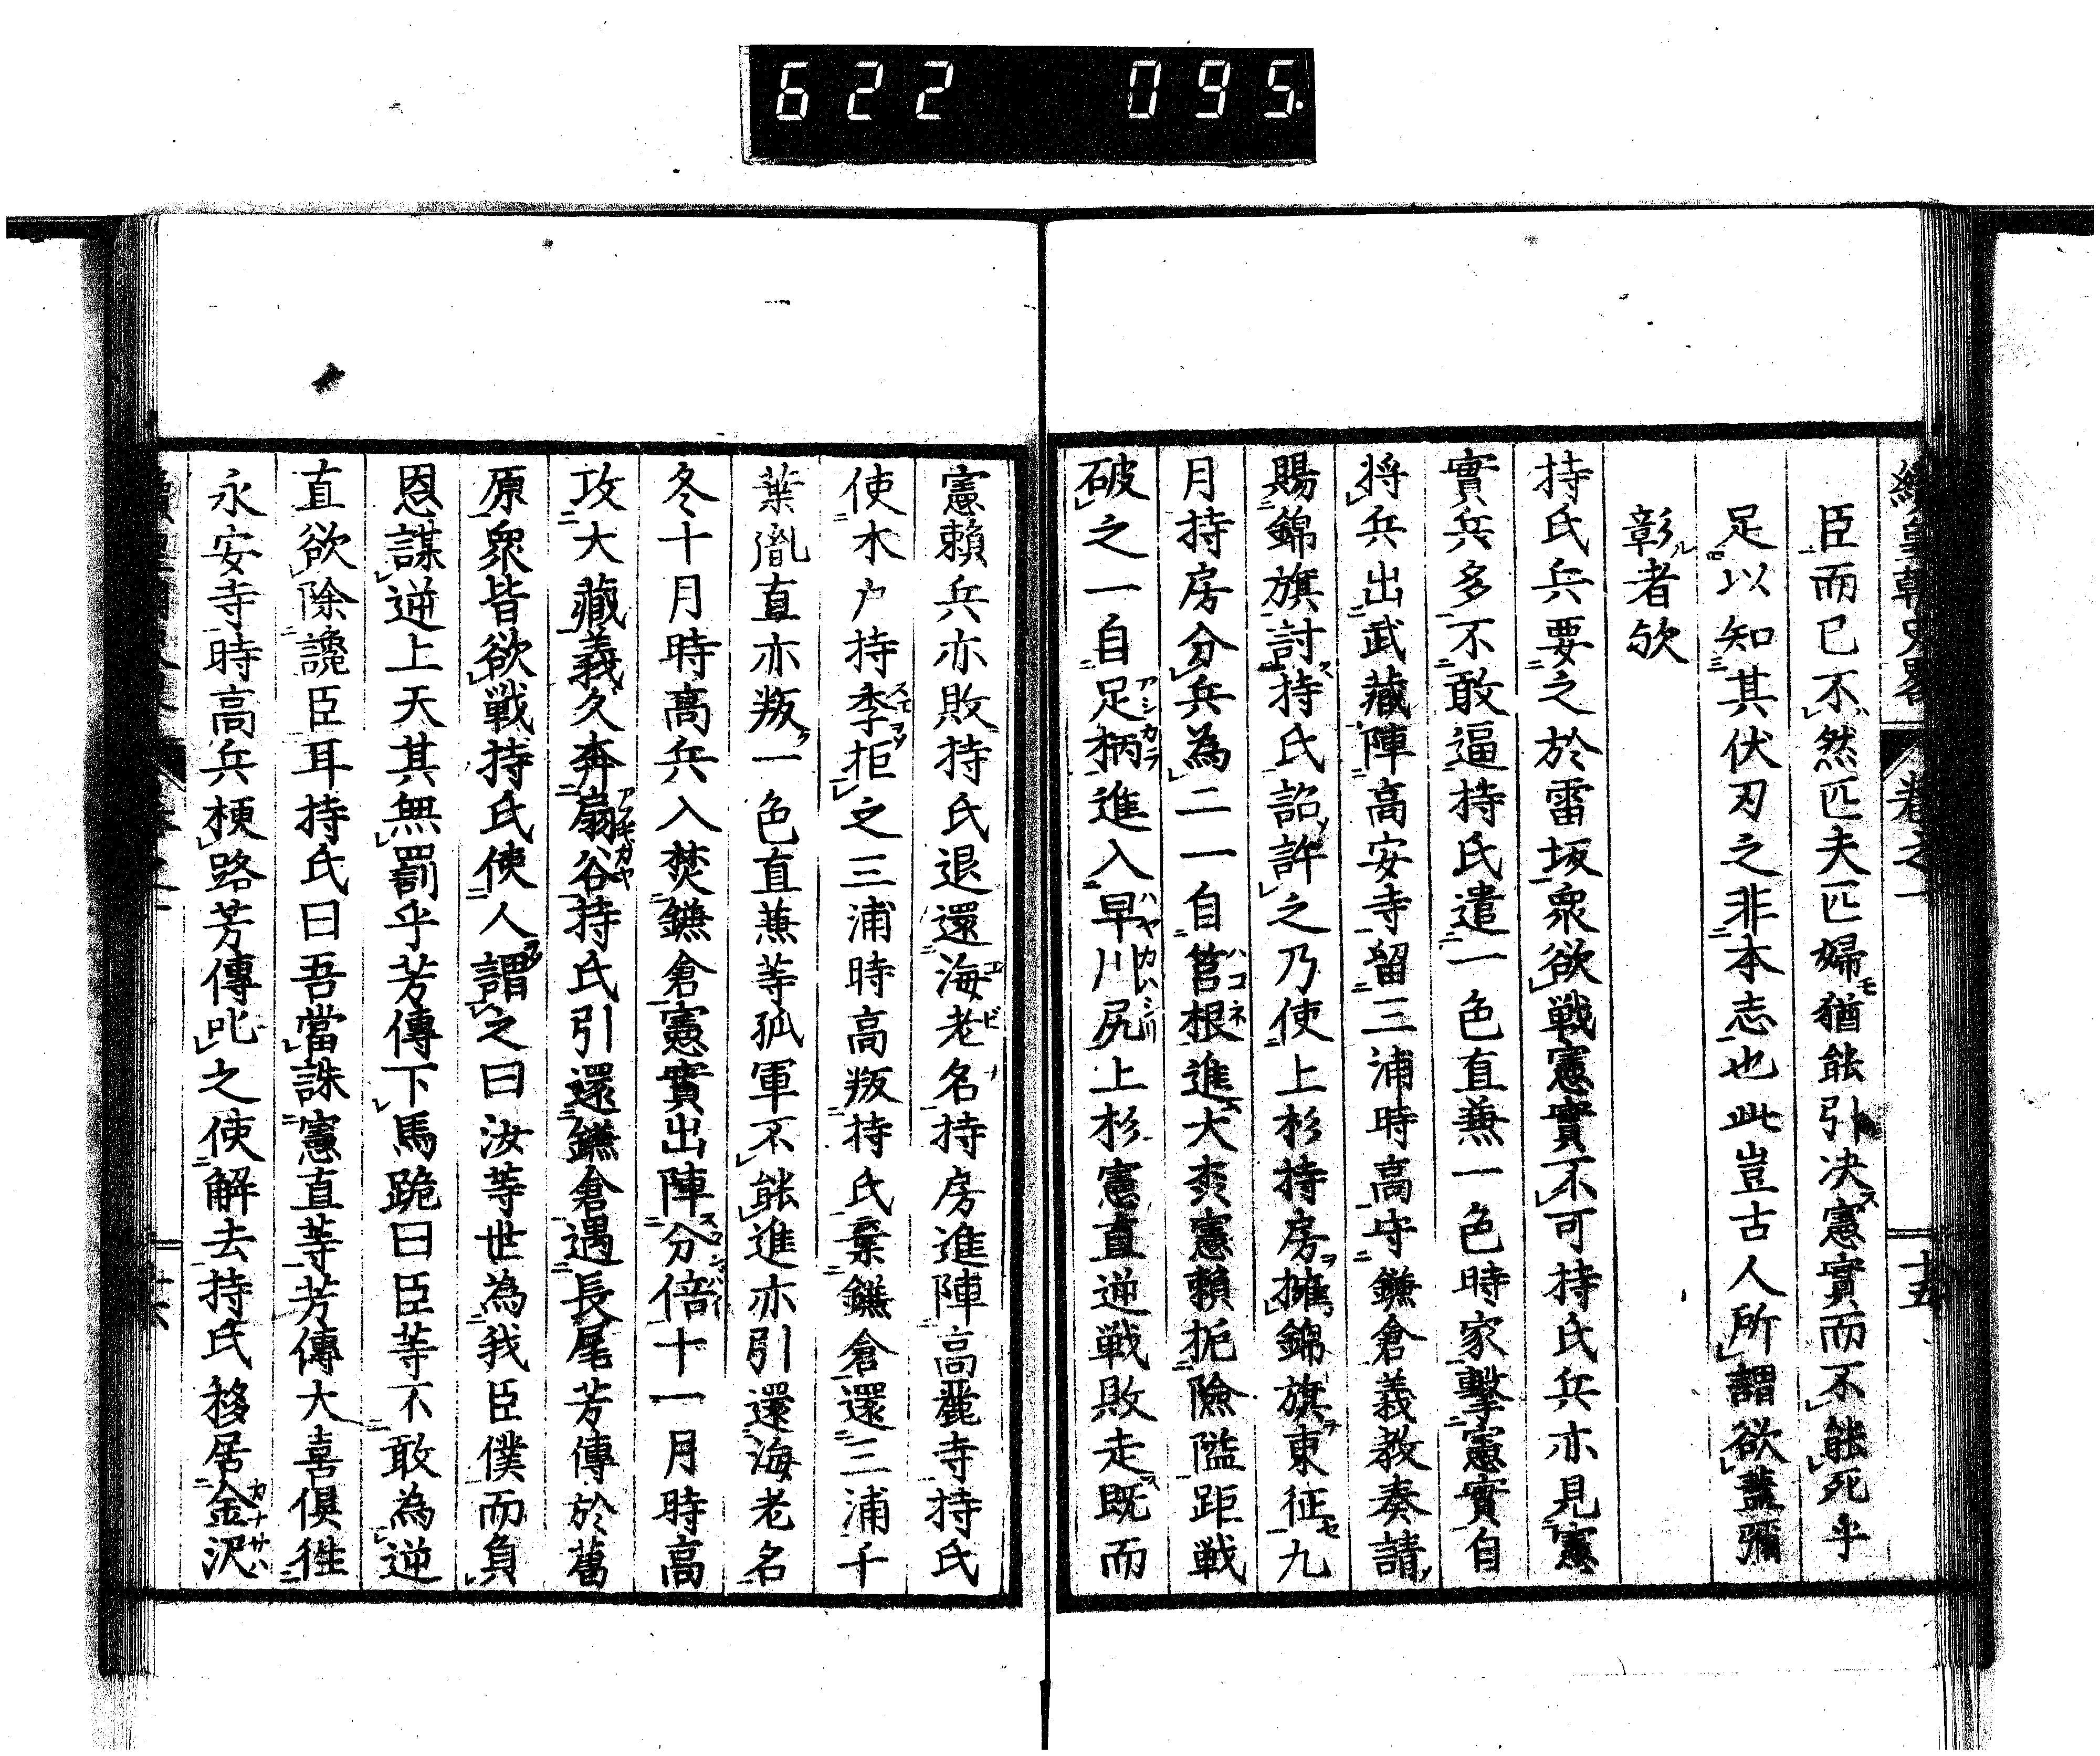 622 095.
續皇朝史畧 卷之一 十五
臣而已不然匹夫匹婦猶能引决憲實而不能死乎
足以知其伏刃之非本志也此豈古人所謂欲蓋彌
彰者欤
持氏兵要之於雷坂衆欲戦憲實不可持氏兵亦見憲
實兵多不敢逼持氏遣一色直兼一色時家擊憲實自
将兵出武藏陣高安寺留三浦時高守鎌倉義教奏請
賜錦旗討持氏詔許之乃使上杉持房擁錦旗東征九
月持房分兵為二一自筥根進大森憲頼扼險隘距戦
破之一自足柄進入早川尻上杉憲直逆戦敗走既而
憲頼兵亦敗持氏退還海老名持房進陣高麗寺持氏
使木戸持季拒之三浦時高叛持氏棄鎌倉還三浦千
葉胤直亦叛一色直兼等孤軍不能進亦引還海老名
冬十月時高兵入焚鎌倉憲實出陣分倍十一月時高
攻大藏義久奔扇谷持氏引還鎌倉遇長尾芳傳於葛
原衆皆欲戦持氏使人謂之曰汝等世為我臣僕而負
恩謀逆上天其無罰乎芳傳下馬跪曰臣等不敢為逆
直欲除讒臣耳持氏曰吾當誅憲直等芳傳大喜倶徃
永安寺時高兵梗路芳傳叱之使解去持氏移居金沢